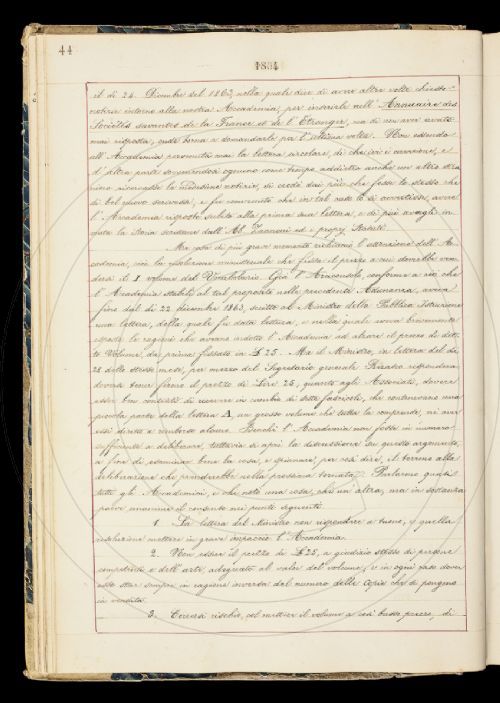 44
1864
il dì 24. Dicembre del 1863, nella quale dice di avere altre volte chieste
notizie intorno alla nostra Accademia, per inserirle nell'Annuaire des
Sociétés savantes de la France et de l'Étranger, ma di non aver avuto
mai risposta, onde torna a domandarle per l'ultima volta. Non essendo
all'Accademia pervenuta mai la lettera circolare, di che ivi è menzione, e
d'altra parte
risposto subito alla prima sua lettera, e di più
la Storia scritane dall'Ab. Zannoni ed i proprj Statuti.
Ma cosa di più grave momento richiamò l'attenzione dell'Ac-
cademia, cioè la risoluzione ministeriale che fissa il prezzo a cui dovrebbe ven-
dersi il I volume del Vocabolario. Già l'Arciconsolo, conforme a ciò che
l'Accademia stabilì al tal proposito nella precedente Adunanza, aveva
fino dal dì 22 dicembre 1863, scritto al Ministro della Pubblica Istruzione
una lettera, della quale fu data lettura, e nella quale aveva brevemente
esposte le ragioni che avevano indotto l'Accademia ad alzare il prezzo di det-
to Volume, da prima fissato in £ 25. Ma il Ministro, in lettera del dì
28 dello stesso mese, per mezzo del Segretario generale
doversi tener fermo il prezzo di Lire 25, quanto agli Associati, dovere
esser ben contenti di ricevere in cambio di sette fascicoli, che contenevano una
piccola parte della lettera A, un grosso volume che tutta la comprende, nè aver
essi diritto a rimborso alcuno. Benchè l'Accademia non fosse in numero
sufficiente a deliberare, tuttavia si aprì la discussione su questo argomento,
a fine di esaminar bene la cosa, e spianare, per così dire, il terreno alla
deliberazione che prenderebbe nella prossima tornata. Parlarono quasi
tutti gli Accademici, e chi notò una cosa, chi un'altra, ma in sostanza
parve unanime il consenso nei punti seguenti
1. La lettera del Ministro non rispondere a tuono, e quella
risoluzione mettere in grave impaccio l'Accademia.
2. Non esser il prezzo di £ 25, a giudizio stesso di persone
competenti e dell'arte, adeguato al valor del volume, e in ogni caso dover
esso star sempre in ragione inversa del numero delle copie che si pongono
in vendita.
3. Correrci rischio, col mettere il volume a così basso prezzo, di